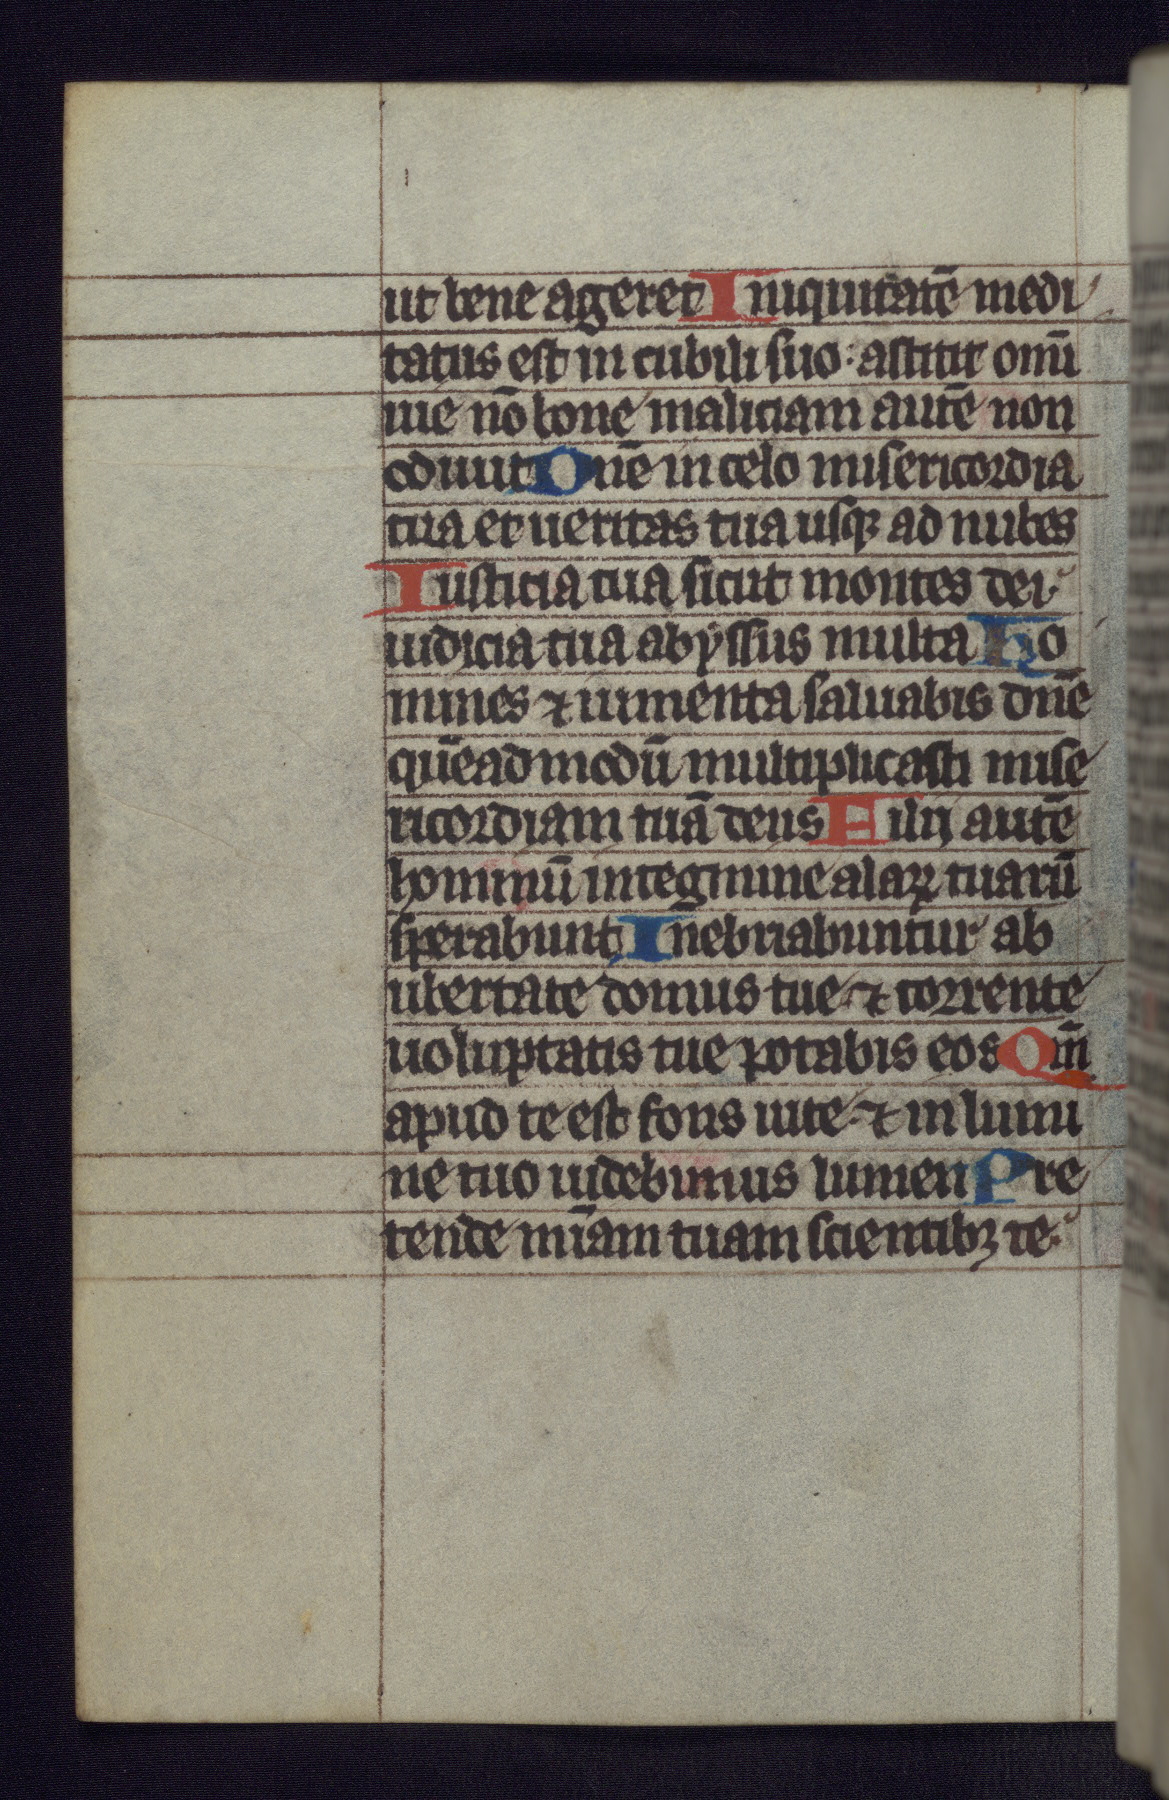 ut bene ageret Iniquitatē medi
tatus est in cubili suo: astitit omī
uie nō bone maliciam autē non
odiuit Dn̄e in celo misericordia
tua et ueritas tua usqꝫ ad nubes
Iusticia tua sicut montes dei
iudicia tua abyssus multa Ho
mines ⁊ iumenta saluabis dn̄e
quēadmodū multiplicasti mise
ricordiam tuā deus Filij autē
hominū in tegmine alaꝝ tuarū
sperabunt Inebriabuntur ab
ubertate domus tue ⁊ torrente
uoluptatis tue potabis eos Qm̄
apud te est fons uite ⁊ in lumi
ne tuo uidebimus lumen Pre
tende mīam tuam scientibꝫ te